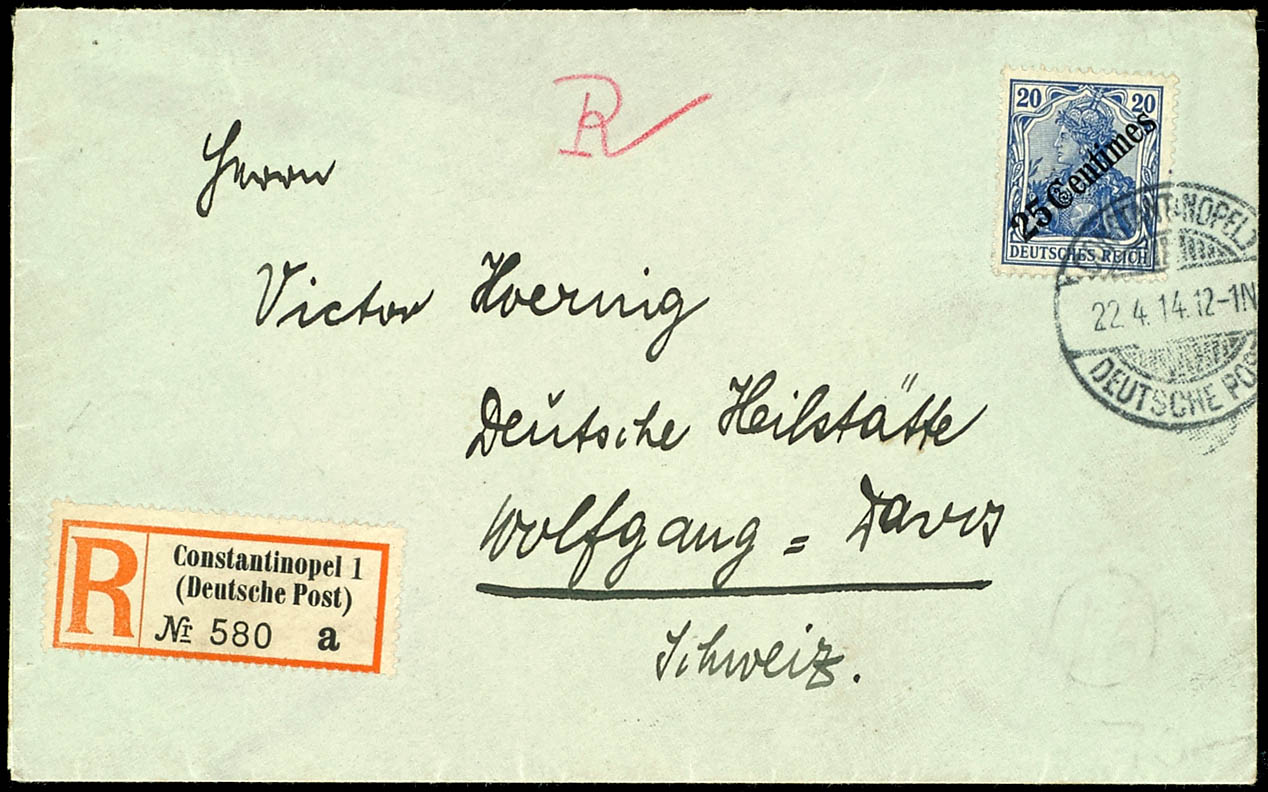 R
Herrn
Victor Hoernig
Deutsche Heilstätte
Wolfgang = Davos
Schweiz.
20 20
25 Centimes
DEUTSCHES REICH
CONSTANTINOPEL 1
22.4.14.12-1N
DEUTSCHE POST
R
Constantinopel 1
(Deutsche Post)
Nr 580 a